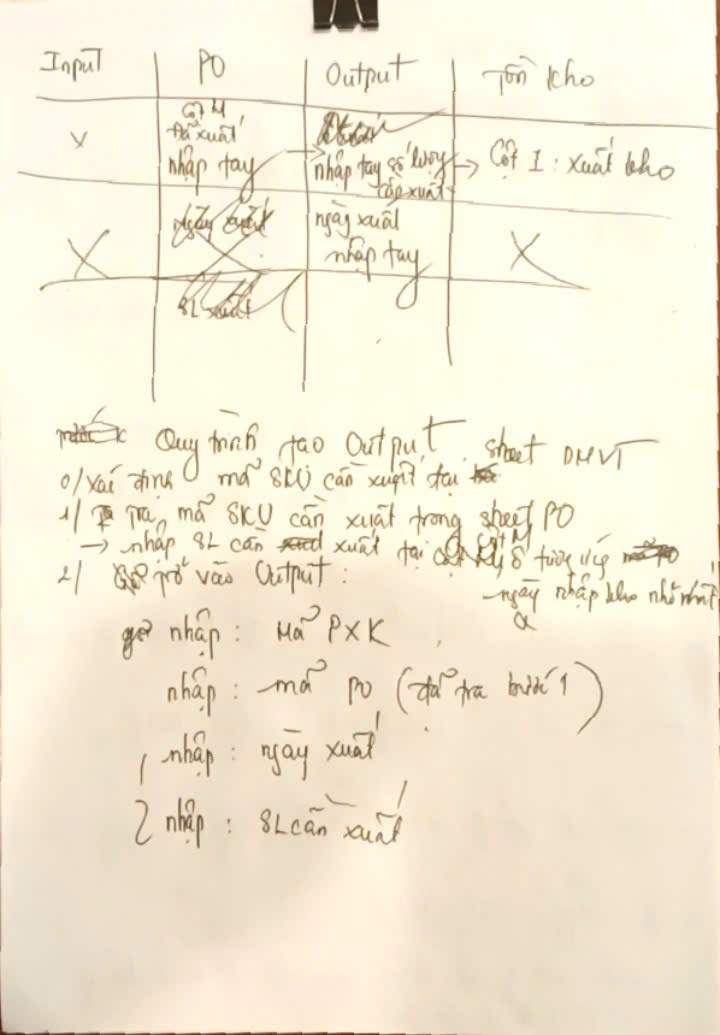 Input PO Output Tồn kho
x
Cột M
Đã xuất
nhập tay
nhập tay số lượng
cần xuất
→ Cột I : xuất kho
X
ngày xuất
ngày xuất
nhập tay
X
SL xuất
Quy trình tạo Output
sheet DMVT
0/ Xác định mã SKU cần xuất tại
1/ Tra mã SKU cần xuất trong sheet PO
→ nhập SL cần xuất tại cột M tương ứng PO
ngày nhập kho nhỏ nhất
2/ vào Output :
nhập : Mã PXK
nhập : mã PO (đã tra bước 1)
1 nhập : ngày xuất
2 nhập : SL cần xuất